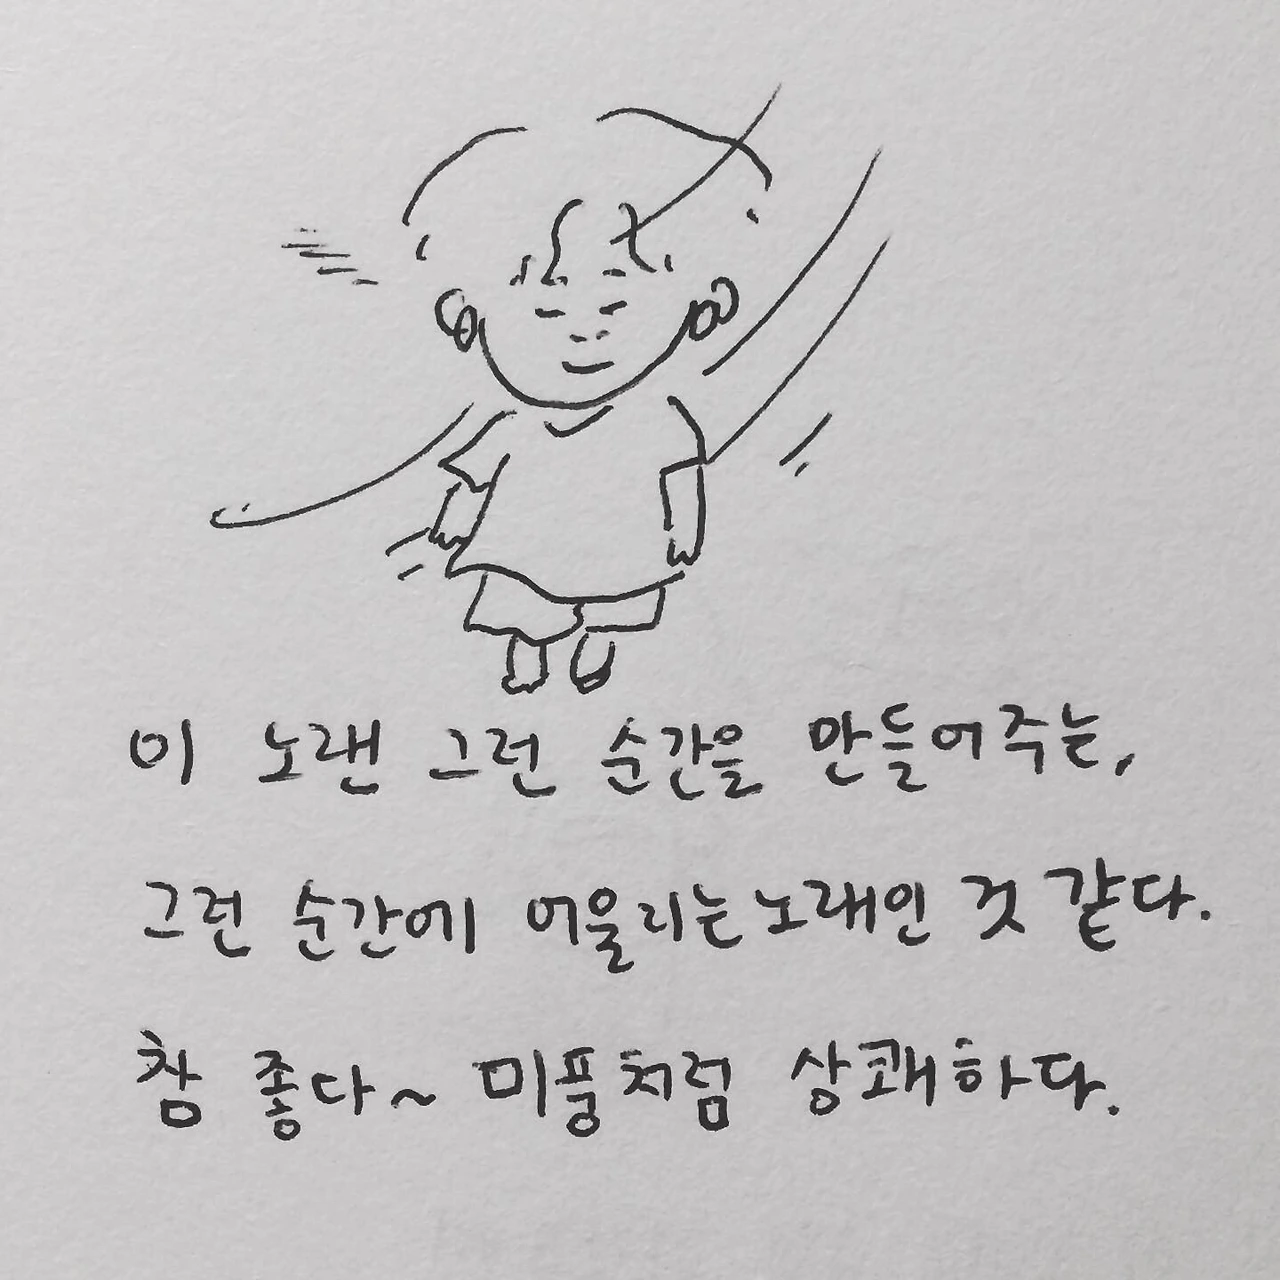 이 노랜 그런 순간을 만들어주는,
그런 순간에 어울리는 노래인 것 같다.
참 좋다~ 미풍처럼 상쾌하다.